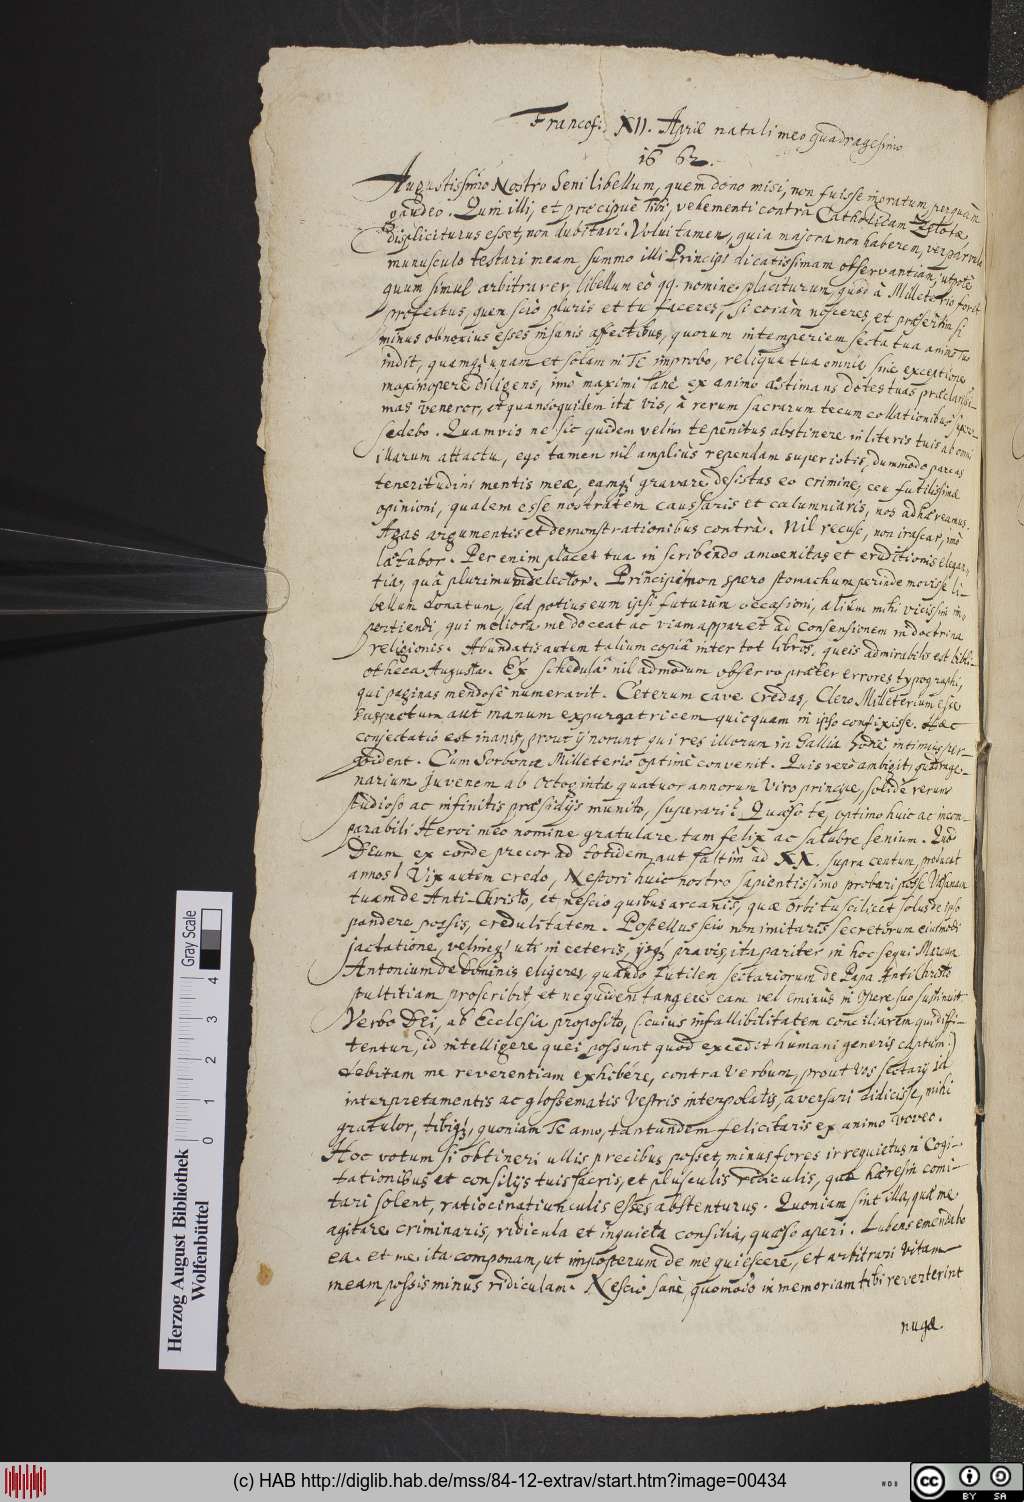 Francof. XII. Aprilis natali meo quadragesimo
16 62.
Augustissimo Nostro Seni libellum, quem dono misi, non fuisse ingratum perquam
gaudeo. Quin illi, et præcipuè Tibi, vehementi contra Catholicam Zelotæ
displiciturus esset, non dubitavi. Volui tamen, quia majora non haberem, vel parvulo
munusculo testari meam summo illi Principi dicatissimam observantiam; utpotè
quum simul arbitrarer, libellum eò qq. nomine placiturum, quod à Milleterio foret
profectus, quem sciò pluris et tu faceres, si coràm nosceres, et præsertim si
minus obnoxius esses insanis affectibus, quorum intemperiem secta tua animis
indit, quamq; unam et solam in Te improbo, reliqua tua omnia sine exceptione
maximopere diligens, imò maximi sanè ex animo æstimans dotes tuas præclarissi-
mas veneror, et quandoquidem ità vis, à rerum sacrarum tecum collationibus super-
sedebo. Quamvis ne sic quidem velim te penitus abstinere in literis tuis ab omni
illarum attactu, ego tamen nil ampliùs rependam super istis, dummodo parcas
teneritudini mentis meæ, eamq; gravare desistas eo crimine, ceu futilissimæ
opinioni, qualem esse nostratem caussaris et calumniaris, nos adhæreamus.
Agas argumentis et demonstrationibus contrà. Nil recuso, non irascar, imò
lætabor. Per enim placet tua in scribendo amœnitas et eruditionis elegan-
tia, quâ plurimum delector. Principem non spero stomachum perinde movisse li-
bellum donatum, sed potius eum ipsi futurum occasioni, alium mihi vicissim im-
pertiendi, qui meliora me doceat ac viam apparet ad consensionem in doctrina
religionis. Abundatis autem talium copiâ inter tot libros, queis admirabilis est bibli-
otheca Augusta. Ex schedula nil admodum observo præter errores typographi,
qui paginas mendosè numeravit. Ceterum cave credas, Clero Milleterium esse
suspectum aut manum expurgatricem quicquam in ipso confixisse. Hæc
conjectatio est inanis, prout ij norunt qui res illorum in Gallia hodiè intimius per-
vident. Cum Sorbona Milleterio optimè convenit. Quis verò ambigit, quadrage-
narium Juvenem ab octoginta quatuor annorum Viro principe, solidè rerum
studioso ac infinitis præsidijs munito, superari? Quæso te, optimo huic ac incom-
parabili Heroi meo nomine gratulare tam felix ac salubre senium. Quod
DEum ex corde precor ad totidem aut saltim ad XX. supra centum producat
annos! Vix autem credo, Nestori huic nostro sapientissimo probari posse Vesanam
tuam de Anti-Christo, et nescio quibus arcanis, quæ orbi tu scilicet solus de ipso
pandere possis, credulitatem. Postellus sciò non imitaris secretorum ejusmodi
jactatione, velimq; uti in ceteris, ijsq; pravis, ita pariter in hoc sequi Marcum
Antonium de Dominis eligeres, quando futilem sectariorum de Papa Antichristo
stultitiam proscribit et ne quidem tangere eam vel eminùs in Opere suo sustinuit.
Verbo DEi, ab Ecclesia proposito, (cuius infallibilitatem conciliarem qui diffi-
tentur, id intelligere quei possunt quod excedit humani generis captum:)
debitam me reverentiam exhibere, contra Verbum, prout vos sectarij id
interpretamentis ac glossematis Vestris interpolatis, aversari didicisse, mihi
gratulor, tibiq;, quoniam Te amo, tantundem felicitaris ex animo voveo.
Hoc votum si obtineri ullis precibus posset, minus fores irrequietus in Cogi-
tationibus et consilijs tuis sacris, et plusculis ridiculis, quæ hæresin comi-
tari solent, ratiocinatiunculis esses abstenturus. Quoniam sint illa, quæ me
agitare criminaris, ridicula et inquieta consilia, quæso aperi. Lubens emendabo
ea. et me ita componam, ut imposterum de me quiescere, et arbitrari vitam
meam possis minus ridiculam. Nescio sanè, quomodo in memoriam tibi reverterint
nugæ.
Herzog August Bibliothek
Wolfenbüttel
Gray Scale
0 1 2 3 4
(c) HAB http://diglib.hab.de/mss/84-12-extrav/start.htm?image=00434
WDB
cc BY SA